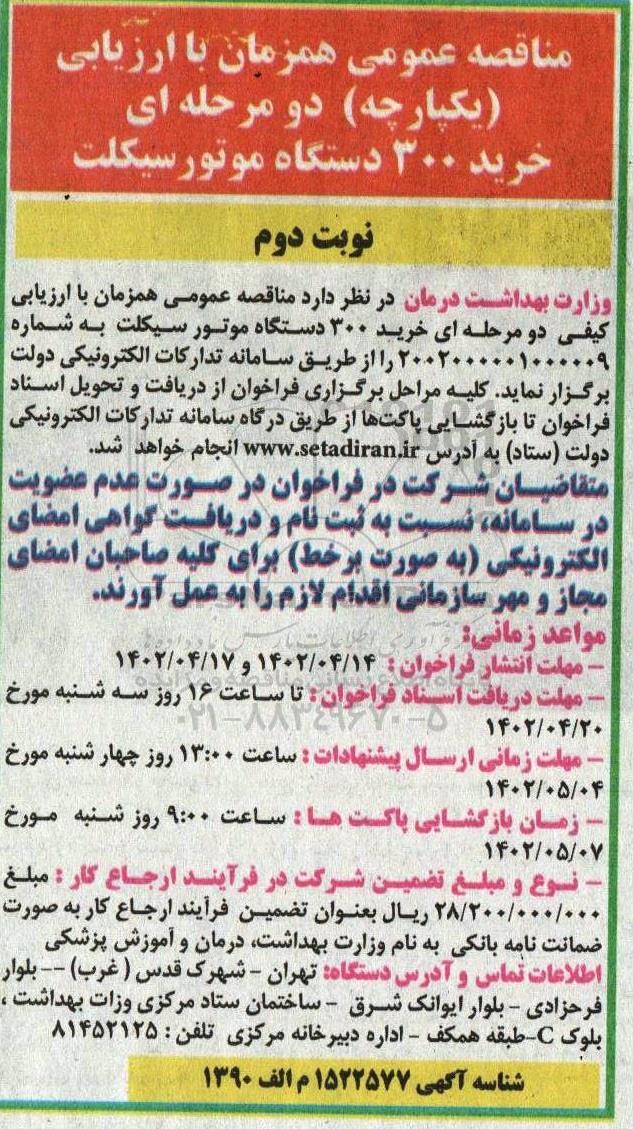 مناقصه عمومی همزمان با ارزیابی
(یکپارچه) دو مرحله ای
خرید ۳۰۰ دستگاه موتورسیکلت
نوبت دوم
وزارت بهداشت درمان در نظر دارد مناقصه عمومی همزمان با ارزیابی
کیفی دو مرحله ای خرید ۳۰۰ دستگاه موتور سیکلت به شماره
۲۰۰۲۰۰۰۰۰۰۱۰۰۰۰۰۹ را از طریق سامانه تدارکات الکترونیکی دولت
برگزار نماید. کلیه مراحل برگزاری فراخوان از دریافت و تحویل اسناد
فراخوان تا بازگشایی پاکت‌ها از طریق درگاه سامانه تدارکات الکترونیکی
دولت (ستاد) به آدرس www.setadiran.ir انجام خواهد شد.
متقاضیان شرکت در فراخوان در صورت عدم عضویت
در سامانه، نسبت به ثبت نام و دریافت گواهی امضای
الکترونیکی (به صورت برخط) برای کلیه صاحبان امضای
مجاز و مهر سازمانی اقدام لازم را به عمل آورند.
مواعد زمانی:
– مهلت انتشار فراخوان : ۱۴۰۲/۰۴/۱۴ و ۱۴۰۲/۰۴/۱۷
– مهلت دریافت اسناد فراخوان : تا ساعت ۱۶ روز سه شنبه مورخ
۱۴۰۲/۰۴/۲۰
– مهلت زمانی ارسال پیشنهادات : ساعت ۱۳:۰۰ روز چهار شنبه مورخ
۱۴۰۲/۰۵/۰۴
– زمان بازگشایی پاکت ها : ساعت ۹:۰۰ روز شنبه مورخ
۱۴۰۲/۰۵/۰۷
– نوع و مبلغ تضمین شرکت در فرآیند ارجاع کار : مبلغ
۲۸/۲۰۰/۰۰۰/۰۰۰ ریال بعنوان تضمین فرآیند ارجاع کار به صورت
ضمانت نامه بانکی به نام وزارت بهداشت، درمان و آموزش پزشکی
اطلاعات تماس و آدرس دستگاه: تهران – شهرک قدس (غرب) –– بلوار
فرحزادی – بلوار ایوانک شرق – ساختمان ستاد مرکزی وزات بهداشت ،
بلوک C–طبقه همکف – اداره دبیرخانه مرکزی تلفن : ۸۱۴۵۲۱۲۵
شناسه آگهی ۱۵۲۲۵۷۷ م الف ۱۳۹۰
۰۲۱–۸۸۳۴۹۶۷۰–۵